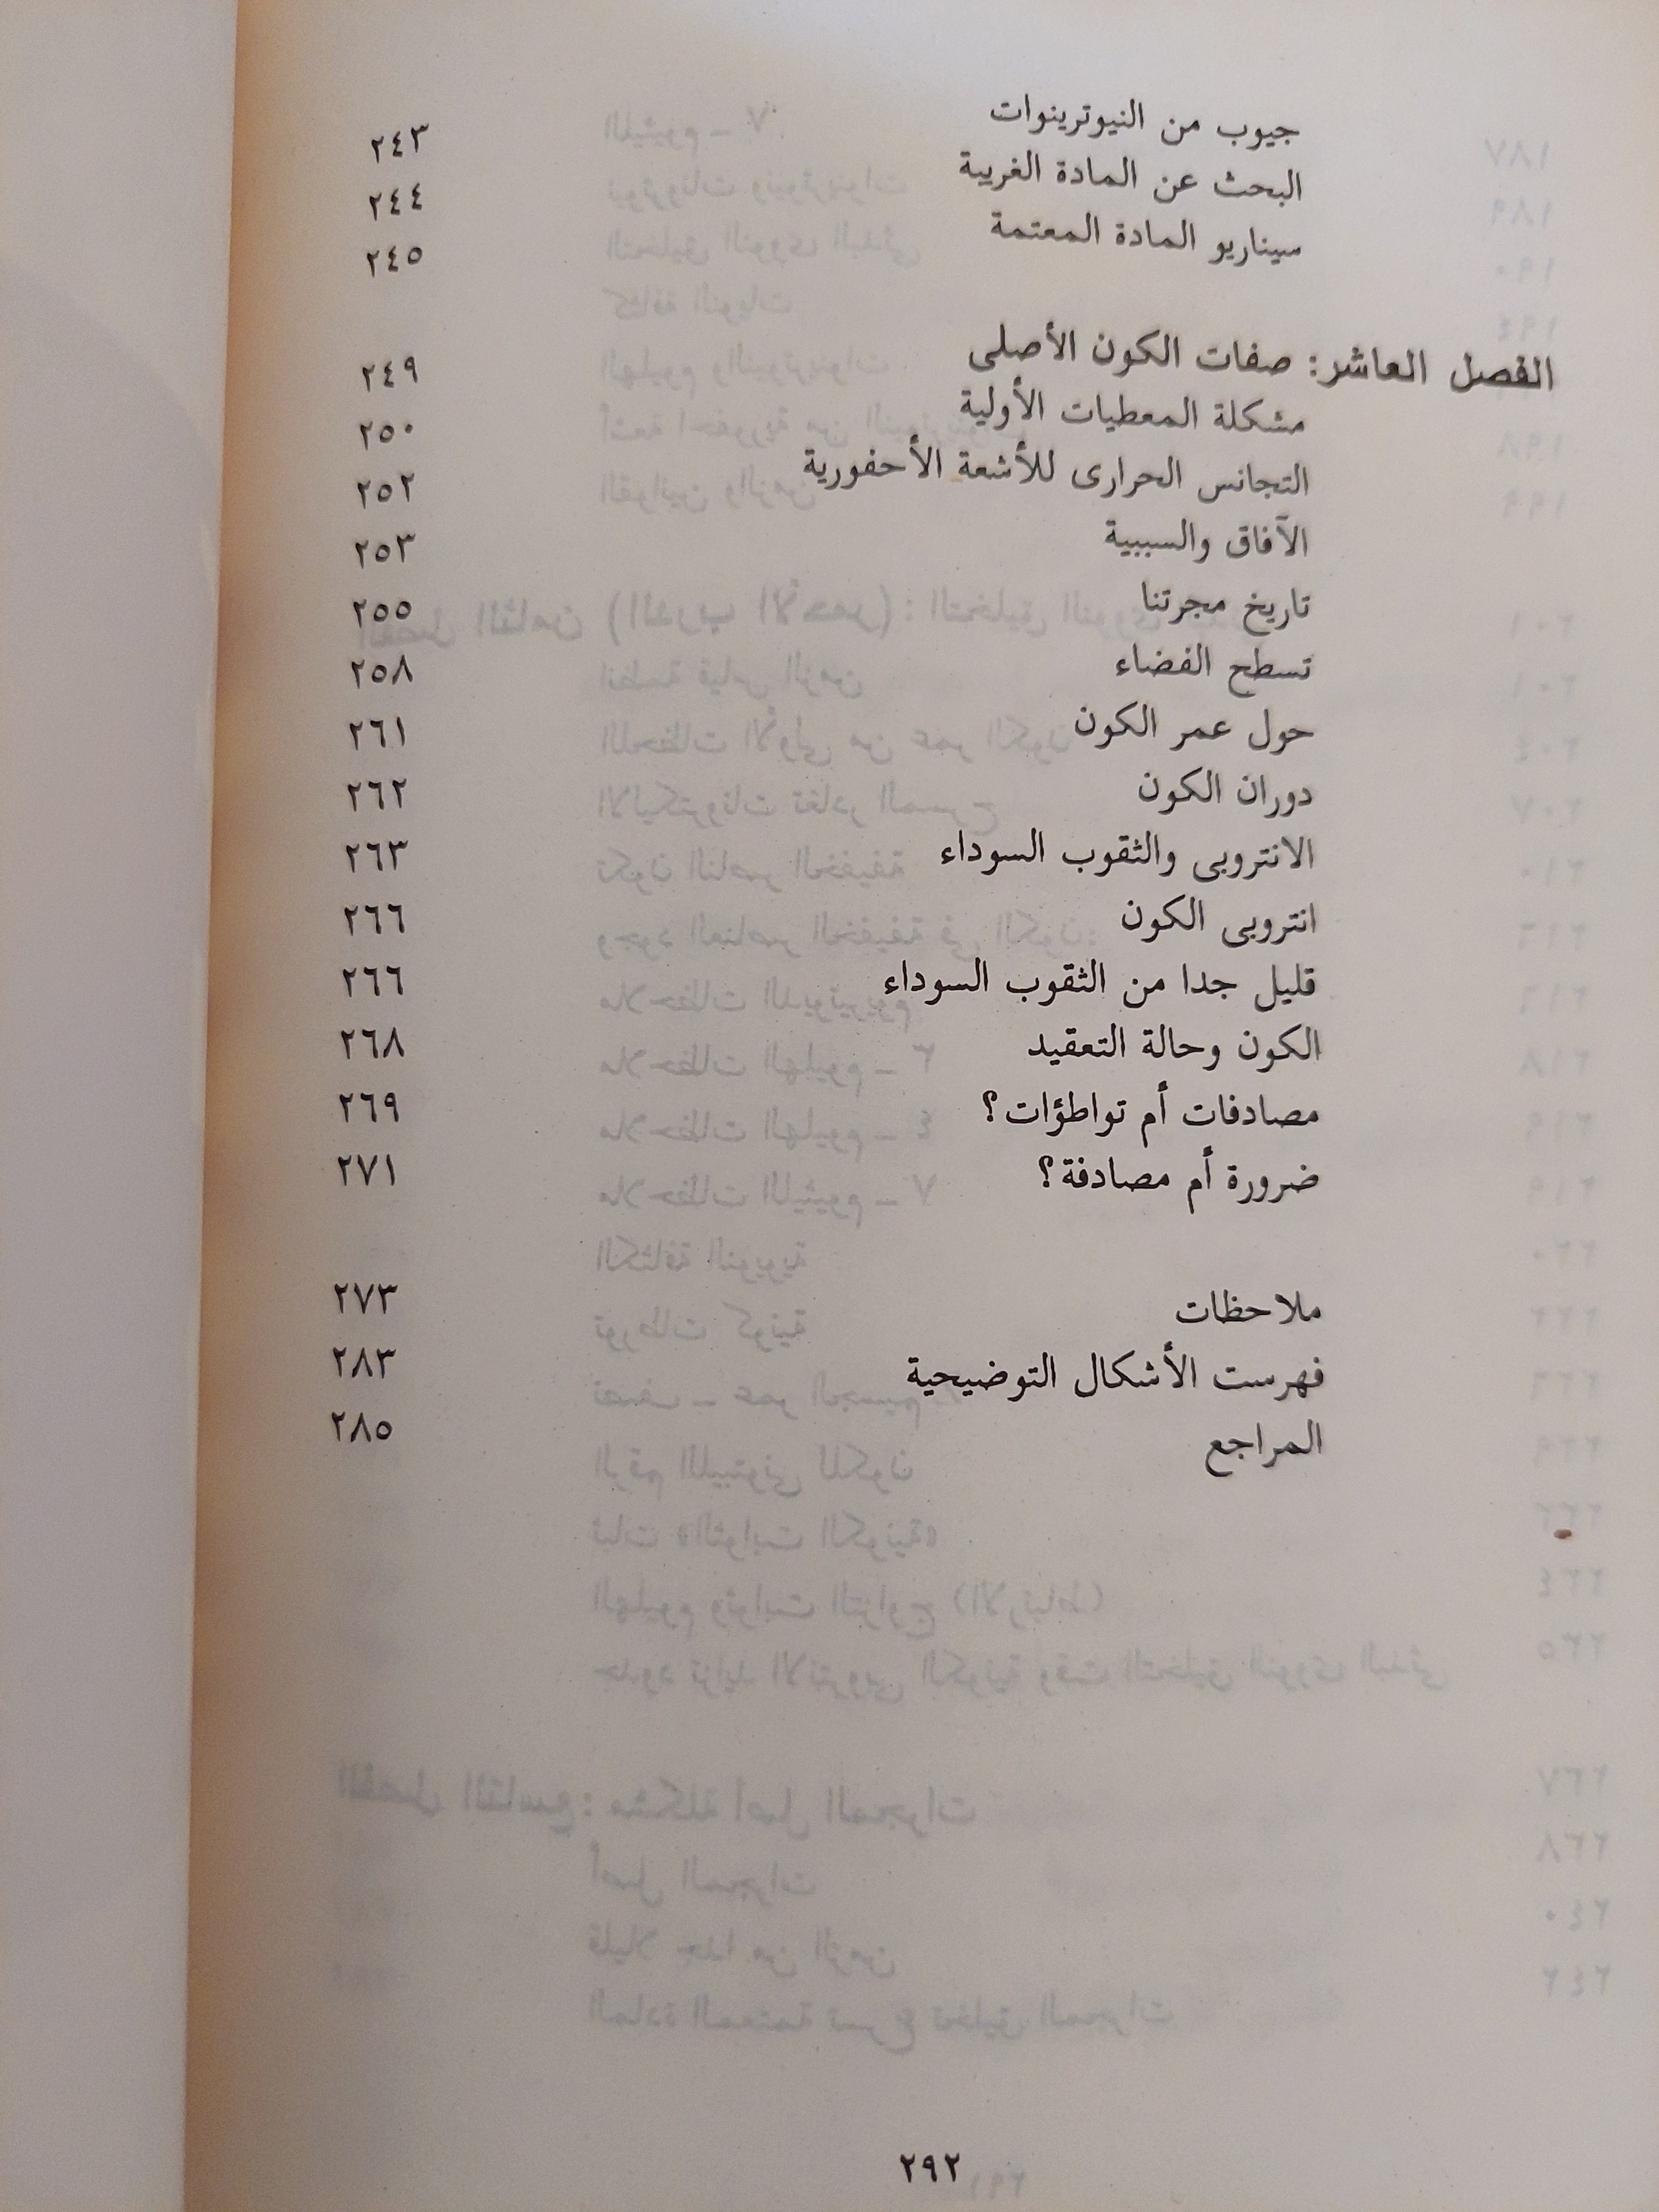 جيوب من النيوترينوات ٢٤٣
البحث عن المادة الغريبة ٢٤٤
سيناريو المادة المعتمة ٢٤٥
الفصل العاشر: صفات الكون الأصلى ٢٤٩
مشكلة المعطيات الأولية ٢٥٠
التجانس الحرارى للأشعة الأحفورية ٢٥٢
الآفاق والسببية ٢٥٣
تاريخ مجرتنا ٢٥٥
تسطح الفضاء ٢٥٨
حول عمر الكون ٢٦١
دوران الكون ٢٦٢
الانتروبى والثقوب السوداء ٢٦٣
انتروبى الكون ٢٦٦
قليل جدا من الثقوب السوداء ٢٦٦
الكون وحالة التعقيد ٢٦٨
مصادفات أم تواطؤات؟ ٢٦٩
ضرورة أم مصادفة؟ ٢٧١
ملاحظات ٢٧٣
فهرست الأشكال التوضيحية ٢٨٣
المراجع ٢٨٥
٢٩٢